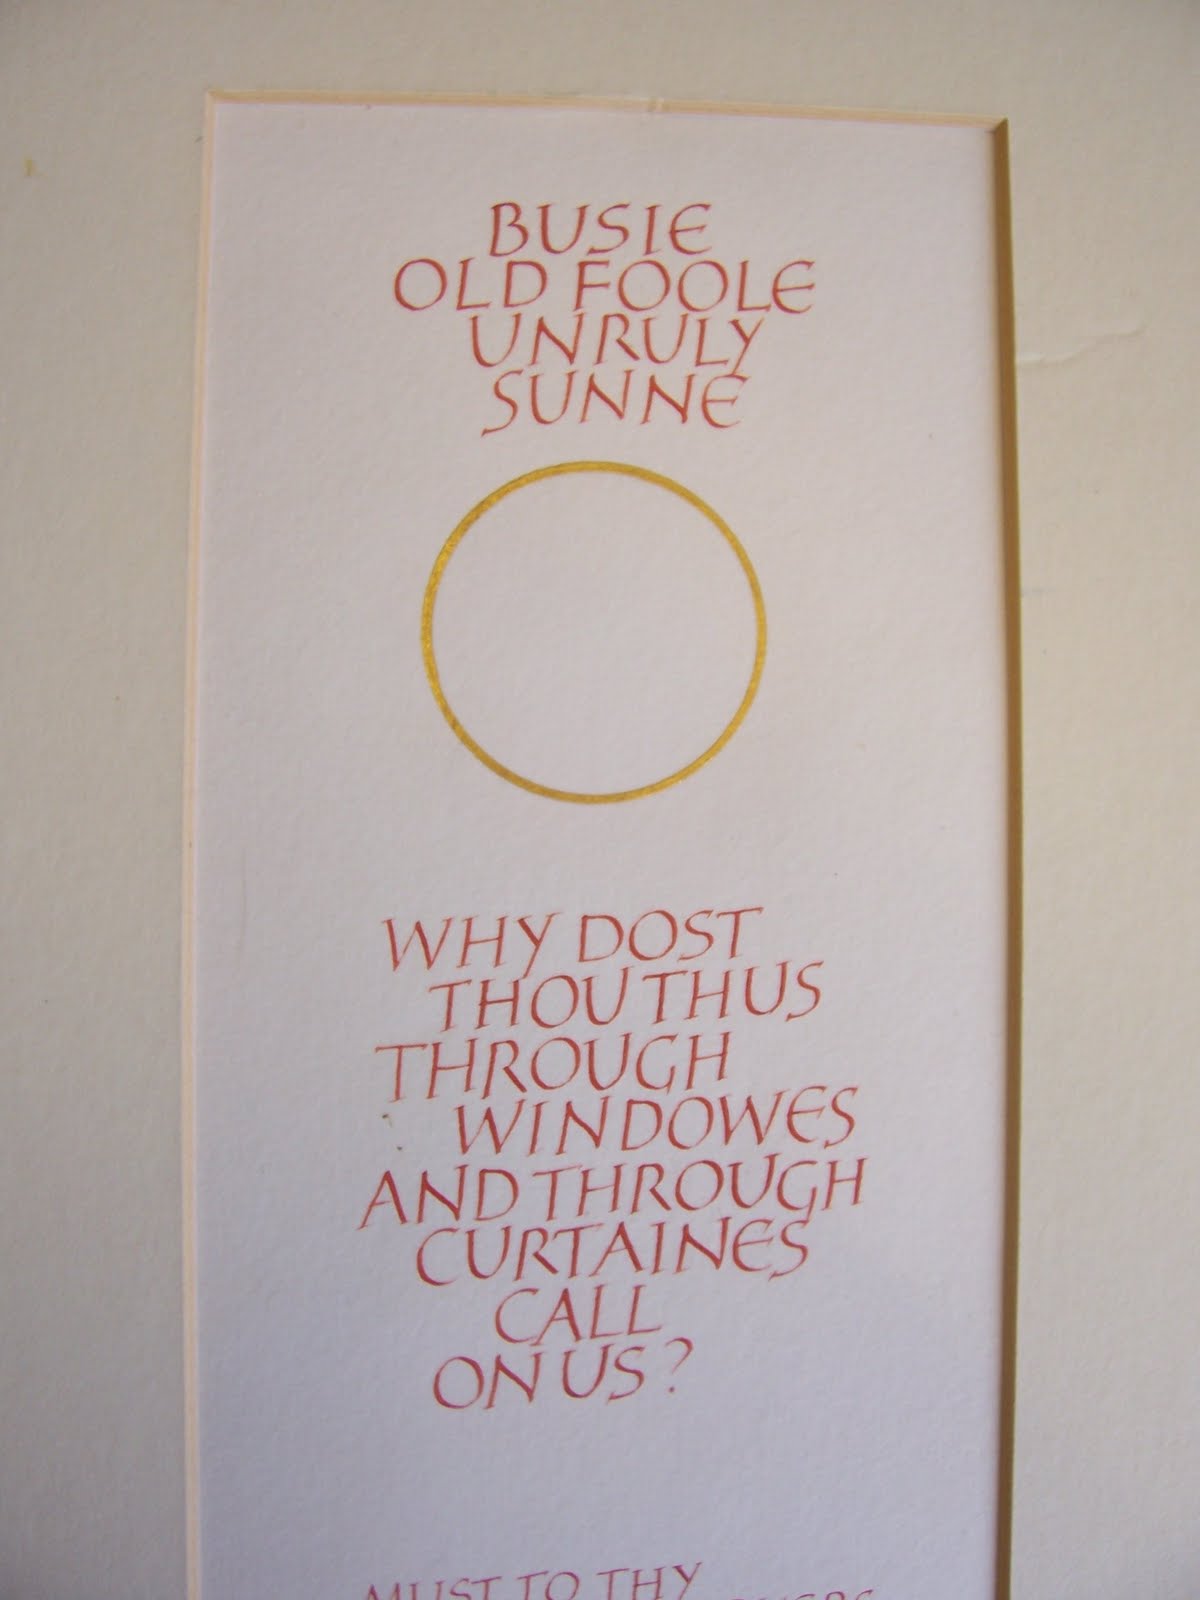 BUSIE
OLD FOOLE
UNRULY
SUNNE
WHY DOST
THOU THUS
THROUGH
WINDOWES
AND THROUGH
CURTAINES
CALL
ON US?
MUST TO THY